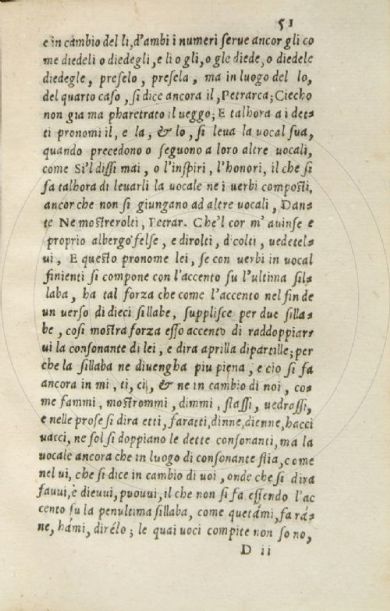 51
e in cambio del li, d'ambi i numeri serue ancor gli co
me diedeli o diedegli, e li o gli, o gle diede, o diedele
diedegle, preselo, presela, ma in luogo del lo,
del quarto caso, si dice ancora il, Petrarca; Ciecho
non gia ma pharetrato il ueggo; E talhora a i det=
ti pronomi il, e la, & lo, si leua la uocal sua,
quando precedono o seguono a loro altre uocali,
come S'i'l dissi mai, o l'inspiri, l'honori, il che si
fa talhora di leuarli la uocale ne i uerbi composti,
ancor che non si giungano ad altre uocali, Dan=
te Ne mostrerolti, Petrar. Che'l cor m' auinse e
proprio albergo felse, e dirolti, dicolti, uedetel=
ui, E questo pronome lei, se con uerbi in uocal
finienti si compone con l'accento su l'ultima sil=
laba, ha tal forza che come l'accento nel fin de
un uerso di dieci sillabe, supplisce per due silla=
be, cosi mostra forza esso accento di raddoppiar=
ui la consonante di lei, e dira aprilla dipartille; per
che la sillaba ne diuengha piu piena, e cio si fa
ancora in mi, ti, ci, & ne in cambio di noi, co=
me fammi, mostrommi, dimmi, stassi, uedrassi,
e nelle prose si dira etti, faratti, dinne, dienne, hacci
uacci, ne sol si doppiano le dette consonanti, ma la
uocale ancora che in luogo di consonante stia, come
nel ui, che si dice in cambio di uoi, onde che si dira
fauui, e dieuui, puouui, il che non si fa essendo l'ac
cento su la penultima sillaba, come quetámi, fará=
ne, hámi, dirélo; le quai uoci compite non sono,
D ii